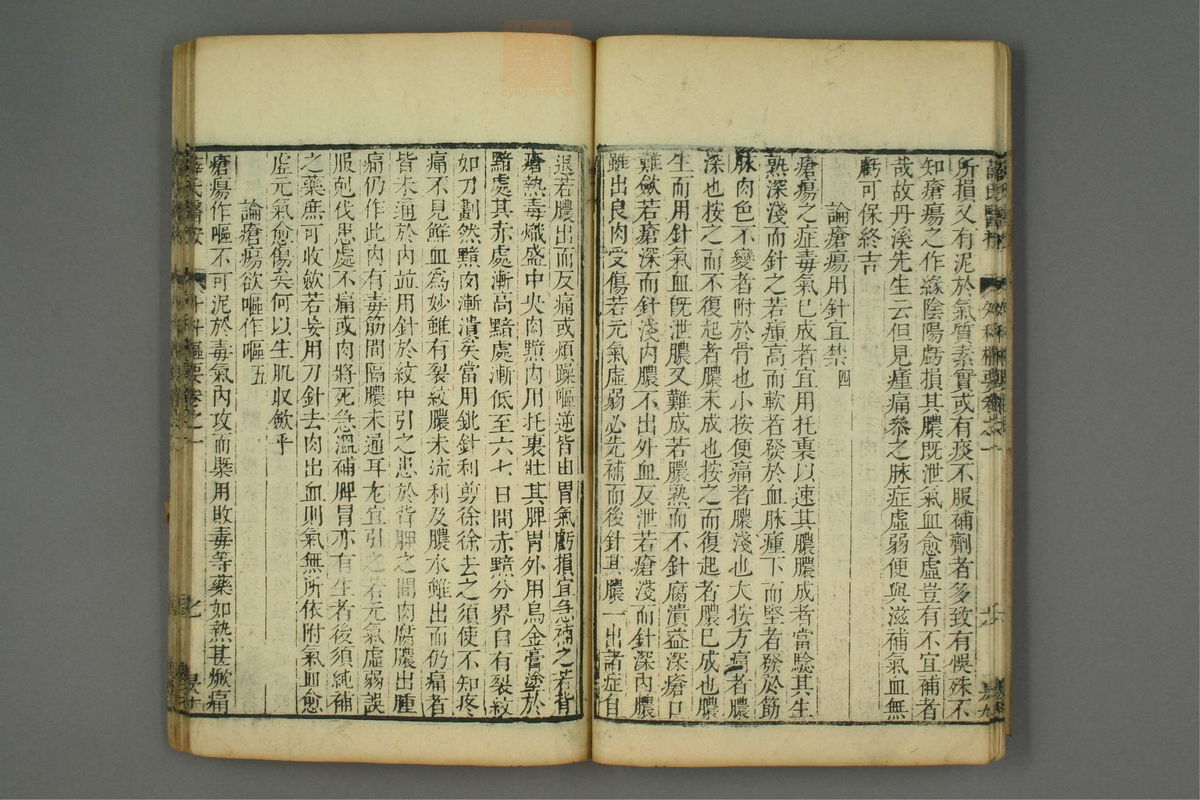 所損又有泥於氣質素實或有痰不服補劑者多致有悞殊不
知瘡瘍之作緣陰陽虧損其膿既泄氣血愈虛豈有不宜補者
哉故丹溪先生云但見腫痛參之脉症虛弱便與滋補氣血無
虧可保終吉
論瘡瘍用針宜禁四
瘡瘍之症毒氣已成者宜用托裏以速其膿膿成者當驗其生
熟深淺而針之若腫高而軟者發於血脉腫下而堅者發於筋
脉肉色不變者附於骨也小按便痛者膿淺也大按方痛者膿
深也按之而不復起者膿未成也按之而復起者膿已成也膿
生而用針氣血既泄膿又難成若膿熟而不針腐潰益深瘡口
難斂若瘡深而針淺内膿不出外血反泄若瘡淺而針深内膿
雖出良肉受傷若元氣虛弱必先補而後針其膿一出諸症自
退若膿出而反痛或煩躁嘔逆皆由胃氣虧損宜急補之若背
瘡熱毒熾盛中央肉黯内用托裏壯其脾胃外用烏金膏塗於
黯處其赤處漸高黯處漸低至六七日間赤黯分界自有裂紋
如刀劃然黯肉漸潰矣當用銚針利剪徐徐去之須使不知疼
痛不見鮮血爲妙雖有裂紋膿未流利及膿水雖出而仍痛者
皆未通於内並用針於紋中引之患於背胛之間肉腐膿出腫
痛仍作此内有毒筋間隔膿未通耳尤宜引之若元氣虛弱誤
服尅伐患處不痛或肉將死急溫補脾胃亦有生者後須純補
之藥庶可收斂若妄用刀針去肉出血則氣無所依附氣血愈
虛元氣愈傷矣何以生肌收斂乎
論瘡瘍欲嘔作嘔五
瘡瘍作嘔不可泥於毒氣内攻而槩用敗毒等藥如熱甚焮痛